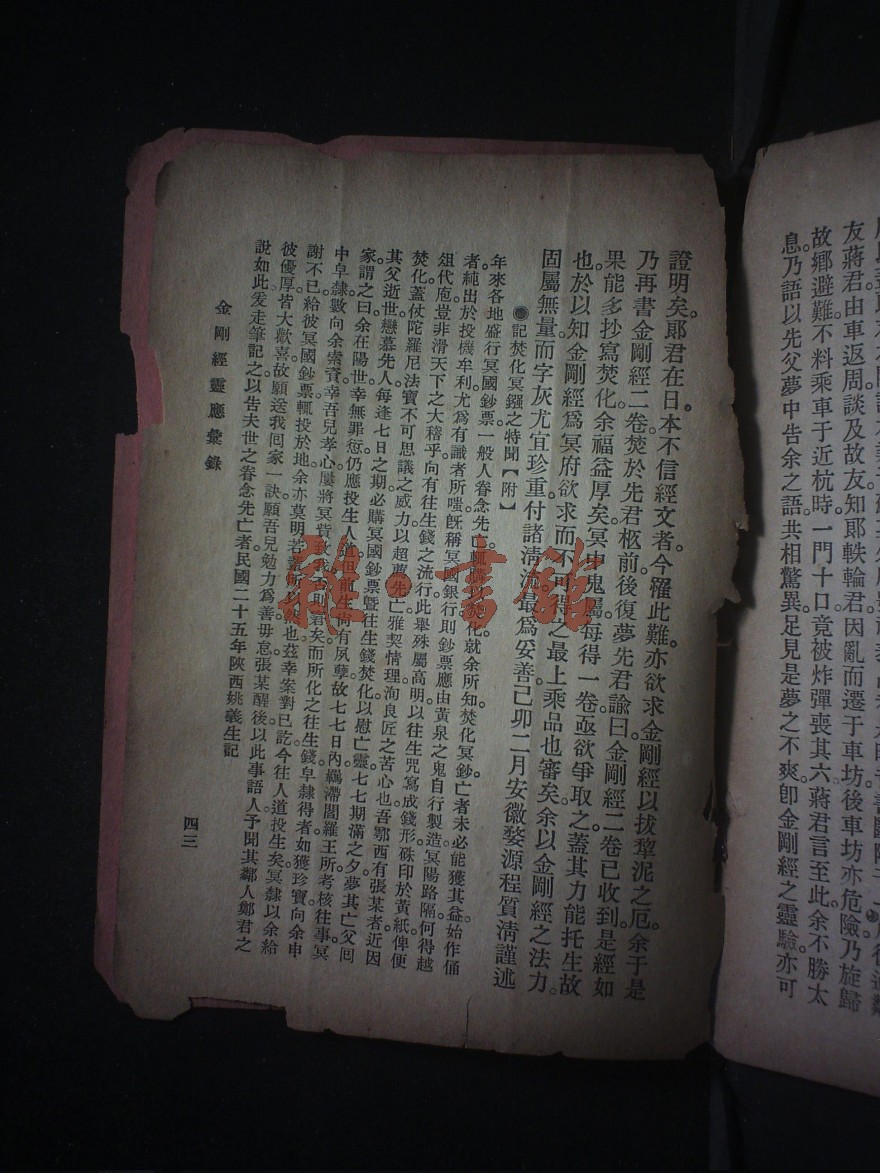 友蔣君由車返周談及故友知郞軼輪君因亂而遷于車坊後車坊亦危險乃旋歸
故鄉避難不料乘車于近杭時一門十口竟被炸彈喪其六蔣君言至此余不勝太
息乃語以先父夢中告余之語共相驚異足見是夢之不爽卽金剛經之靈驗亦可
證明矣。郞君在日本不信經文者。今罹此難亦欲求金剛經以拔犂泥之厄。余于是
乃再書金剛經二卷焚於先君柩前後復夢先君諭曰。金剛經二卷已收到是經如
果能多抄寫焚化余福益厚矣。冥中鬼屬每得一卷亟欲爭取之蓋其力能托生故
也。於以知金剛經爲冥府欲求而不可得之最上乘品也審矣。余以金剛經之法力
固屬無量而字灰尤宜珍重付諸清流最爲妥善己卯二月安徽婺源程質清謹述
●記焚化冥鏹之特聞【附】
年來各地盛行冥國鈔票。一般人眷念先亡輒購以焚化。就余所知焚化冥鈔亡者未必能獲其益。始作俑
者純出於投機牟利尤爲有識者所嗤旣稱冥國銀行則鈔票應由黃泉之鬼自行製造。冥陽路隔何得越
俎代庖。豈非滑天下之大稽乎。向有往生錢之流行此舉殊屬高明。以往生咒寫成錢形硃印於黃紙俾便
焚化。蓋仗陀羅尼法寶不可思議之威力以超薦先亡雅契情理洵良匠之苦心也。吾鄂西有張某者近因
其父逝世戀慕先人每逢七日之期必購冥國鈔票曁往生錢焚化以慰亡靈。七七期滿之夕夢其亡父囘
家謂之曰。余在陽世幸無罪愆仍應投生人道但前生尙有夙孽故七七日內羈滯閻羅王所考核往事。冥
中皁隸數向余索賚。幸吾兒孝心屢將冥貲致我否則窘矣。而所化之往生錢皁隸得者如獲珍寶向余申
謝不已。給彼冥國鈔票輒投於地。余亦莫明若輩所以然也。茲幸案對已訖今往人道投生矣。冥隸以余給
彼優厚皆大歡喜故願送我囘家一訣。願吾兒勉力爲善毋怠張某醒後以此事語人予聞其鄰人鄭君之
說如此。爰走筆記之以告夫世之眷念先亡者民國二十五年陝西姚羲生記
金剛經靈應彙錄
四三
雅·書館